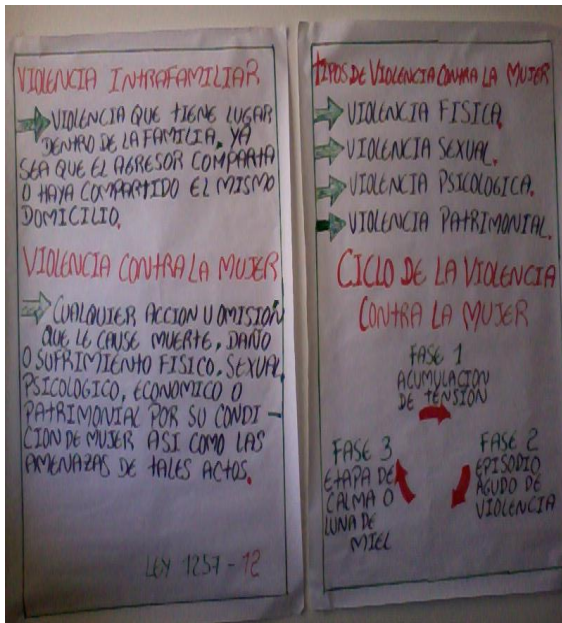 VIOLENCIA INTRAFAMILIAR
VIOLENCIA QUE TIENE LUGAR
DENTRO DE LA FAMILIA, YA
SEA QUE EL AGRESOR COMPARTA
O HAYA COMPARTIDO EL MISMO
DOMICILIO.
VIOLENCIA CONTRA LA MUJER
CUALQUIER ACCION U OMISIÓN
QUE LE CAUSE MUERTE, DAÑO
O SUFRIMIENTO FISICO, SEXUAL,
PSICOLOGICO, ECONOMICO O
PATRIMONIAL POR SU CONDI -
CION DE MUJER ASI COMO LAS
AMENAZAS DE TALES ACTOS.
LEY 1257 - 12
TIPOS DE VIOLENCIA CONTRA LA MUJER
VIOLENCIA FISICA.
VIOLENCIA SEXUAL.
VIOLENCIA PSICOLOGICA.
VIOLENCIA PATRIMONIAL.
CICLO DE LA VIOLENCIA
CONTRA LA MUJER
FASE 1
ACUMULACION
DE TENSIÓN
FASE 2
EPISODIO
AGUDO DE
VIOLENCIA
FASE 3
ETAPA DE
CALMA O
LUNA DE
MIEL